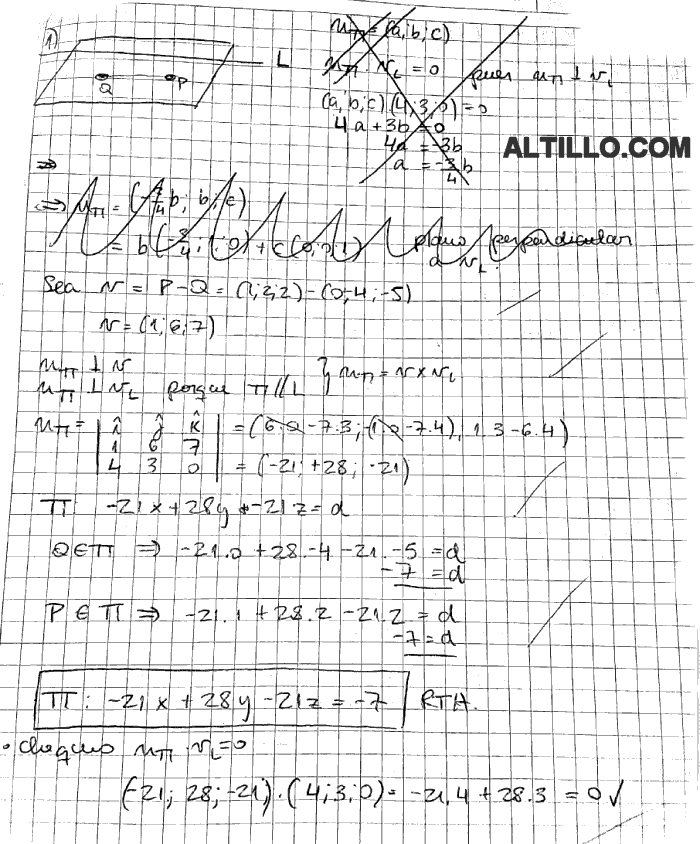 1)
L
Q P
n_π = (a; b; c)
n_π · v_L = 0 pues n_π ⊥ v_L
(a; b; c)(4; 3; 0) = 0
4a + 3b = 0
4a = -3b
a = -3/4 b
ALTILLO.COM
⇒
⇒ n_π = (-3/4 b; b; c)
= b(-3/4; 1; 0) + c(0; 0; 1) plano perpendicular
a v_L.
Sea v = P - Q = (1; 2; 2) - (0; -4; -5)
v = (1; 6; 7)
n_π ⊥ v
n_π ⊥ v_L porque π // L } n_π = v x v_L
n_π = | î ĵ k̂ | = (6.0 - 7.3; -(1.0 - 7.4), 1.3 - 6.4)
| 1 6 7 |
| 4 3 0 | = (-21; +28; -21)
π: -21x + 28y + -21z = d
Q ∈ π ⇒ -21.0 + 28.-4 - 21.-5 = d
-7 = d
P ∈ π ⇒ -21.1 + 28.2 - 21.2 = d
-7 = d
π: -21x + 28y - 21z = -7 RTA.
• chequeo n_π · v_L = 0
(-21; 28; -21) · (4; 3; 0) = -21.4 + 28.3 = 0 ✓